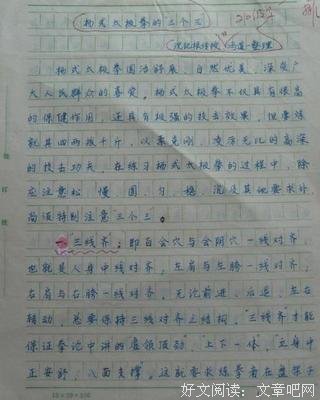 杨式太极拳的三个三
沈纪根传授 冯道一整理
杨式太极拳圆活舒展、自然优美，深受广
大人民群众的喜爱。杨式太极拳不仅具有很高
的保健作用，还具有极强的技击效果。但要练
就其四两拨千斤，以柔克刚，凌厉无比的高深
的技击功夫，在练习杨式太极拳的过程中，除
应注意松、慢、圆、匀、稳、沉及其他要求外，
尚须特别注意“三个三”。
“三线齐”：即百会穴与会阴穴一线对齐，
也就是人身中线对齐，左肩与左胯一线对齐，
右肩与右胯一线对齐，无论前进、后退、左右
转动，总要保持三线对齐之结构。“三线齐”才能
保证拳论中讲的虚领顶劲，“上下一体”，“立身中
正安舒，八面支撑”。这就要求练拳者在盘架子
好文阅读：文章吧网